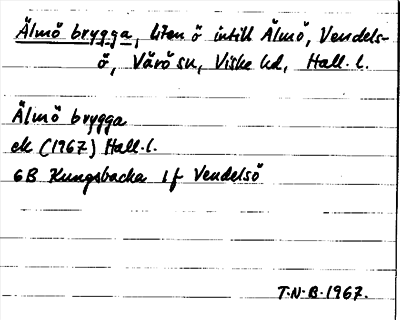 Älmö brygga, liten ö intill Älmö, Vendels-
ö, Värö sn, Viske hd, Hall. l.
Älmö brygga
ek (1967) Hall. l.
6B Kungsbacka 1f Vendelsö
T.N.B. 1967.